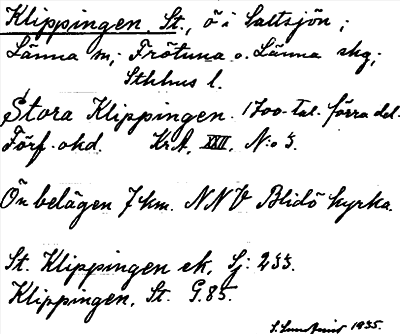 Klippingen, St., ö i Saltsjön;
Länna sn; Frötuna o. Länna skg;
Sthlms l.
Stora Klippingen. 1700-tal. förra del.
Förf. okd. Kr.A. XXII. N:o 3.
Ön belägen 7 km. NNV Blidö kyrka.
St. Klippingen ek, Sj: 233.
Klippingen, St. G.85.
1935.